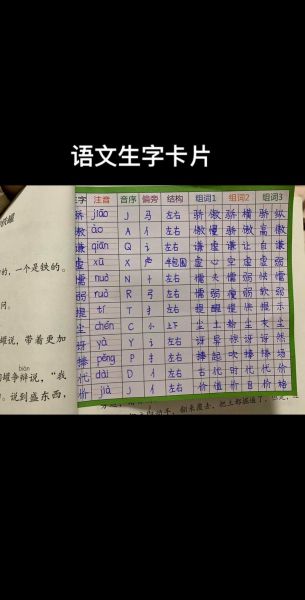 语文生字卡片
字 注音 音序 偏旁 结构 组词1 组词2 组词3
骄 jiāo J 马 左右 骄傲 骄横 骄纵
傲 ào A 亻 左右 傲慢 骄傲 高傲
谦 qiān Q 讠 左右 谦虚 谦让 自谦
虚 xū X 虍 半包围 虚心 空虚 虚弱
懦 nuò N 忄 左右 懦夫 懦弱 怯懦
弱 ruò R 弓 左右 懦弱 瘦弱 软弱
提 tí T 扌 左右 提醒 提示
尘 chén C 小 上下 尘土 粉尘 灰尘
讶 yà Y 讠 左右 讶异 惊讶 讶然
捧 pěng P 扌 左右 捧起 吹捧 捧场
代 dài D 亻 左右 古代 时代 代价
价 jià J 亻 左右 价值 价目 价格
的,一个是铁的。
问。
罐说,带着更加
biàn
罐争辩说,“我
。说到盛东西,
动手,翻来覆去,把土都掘遍了,